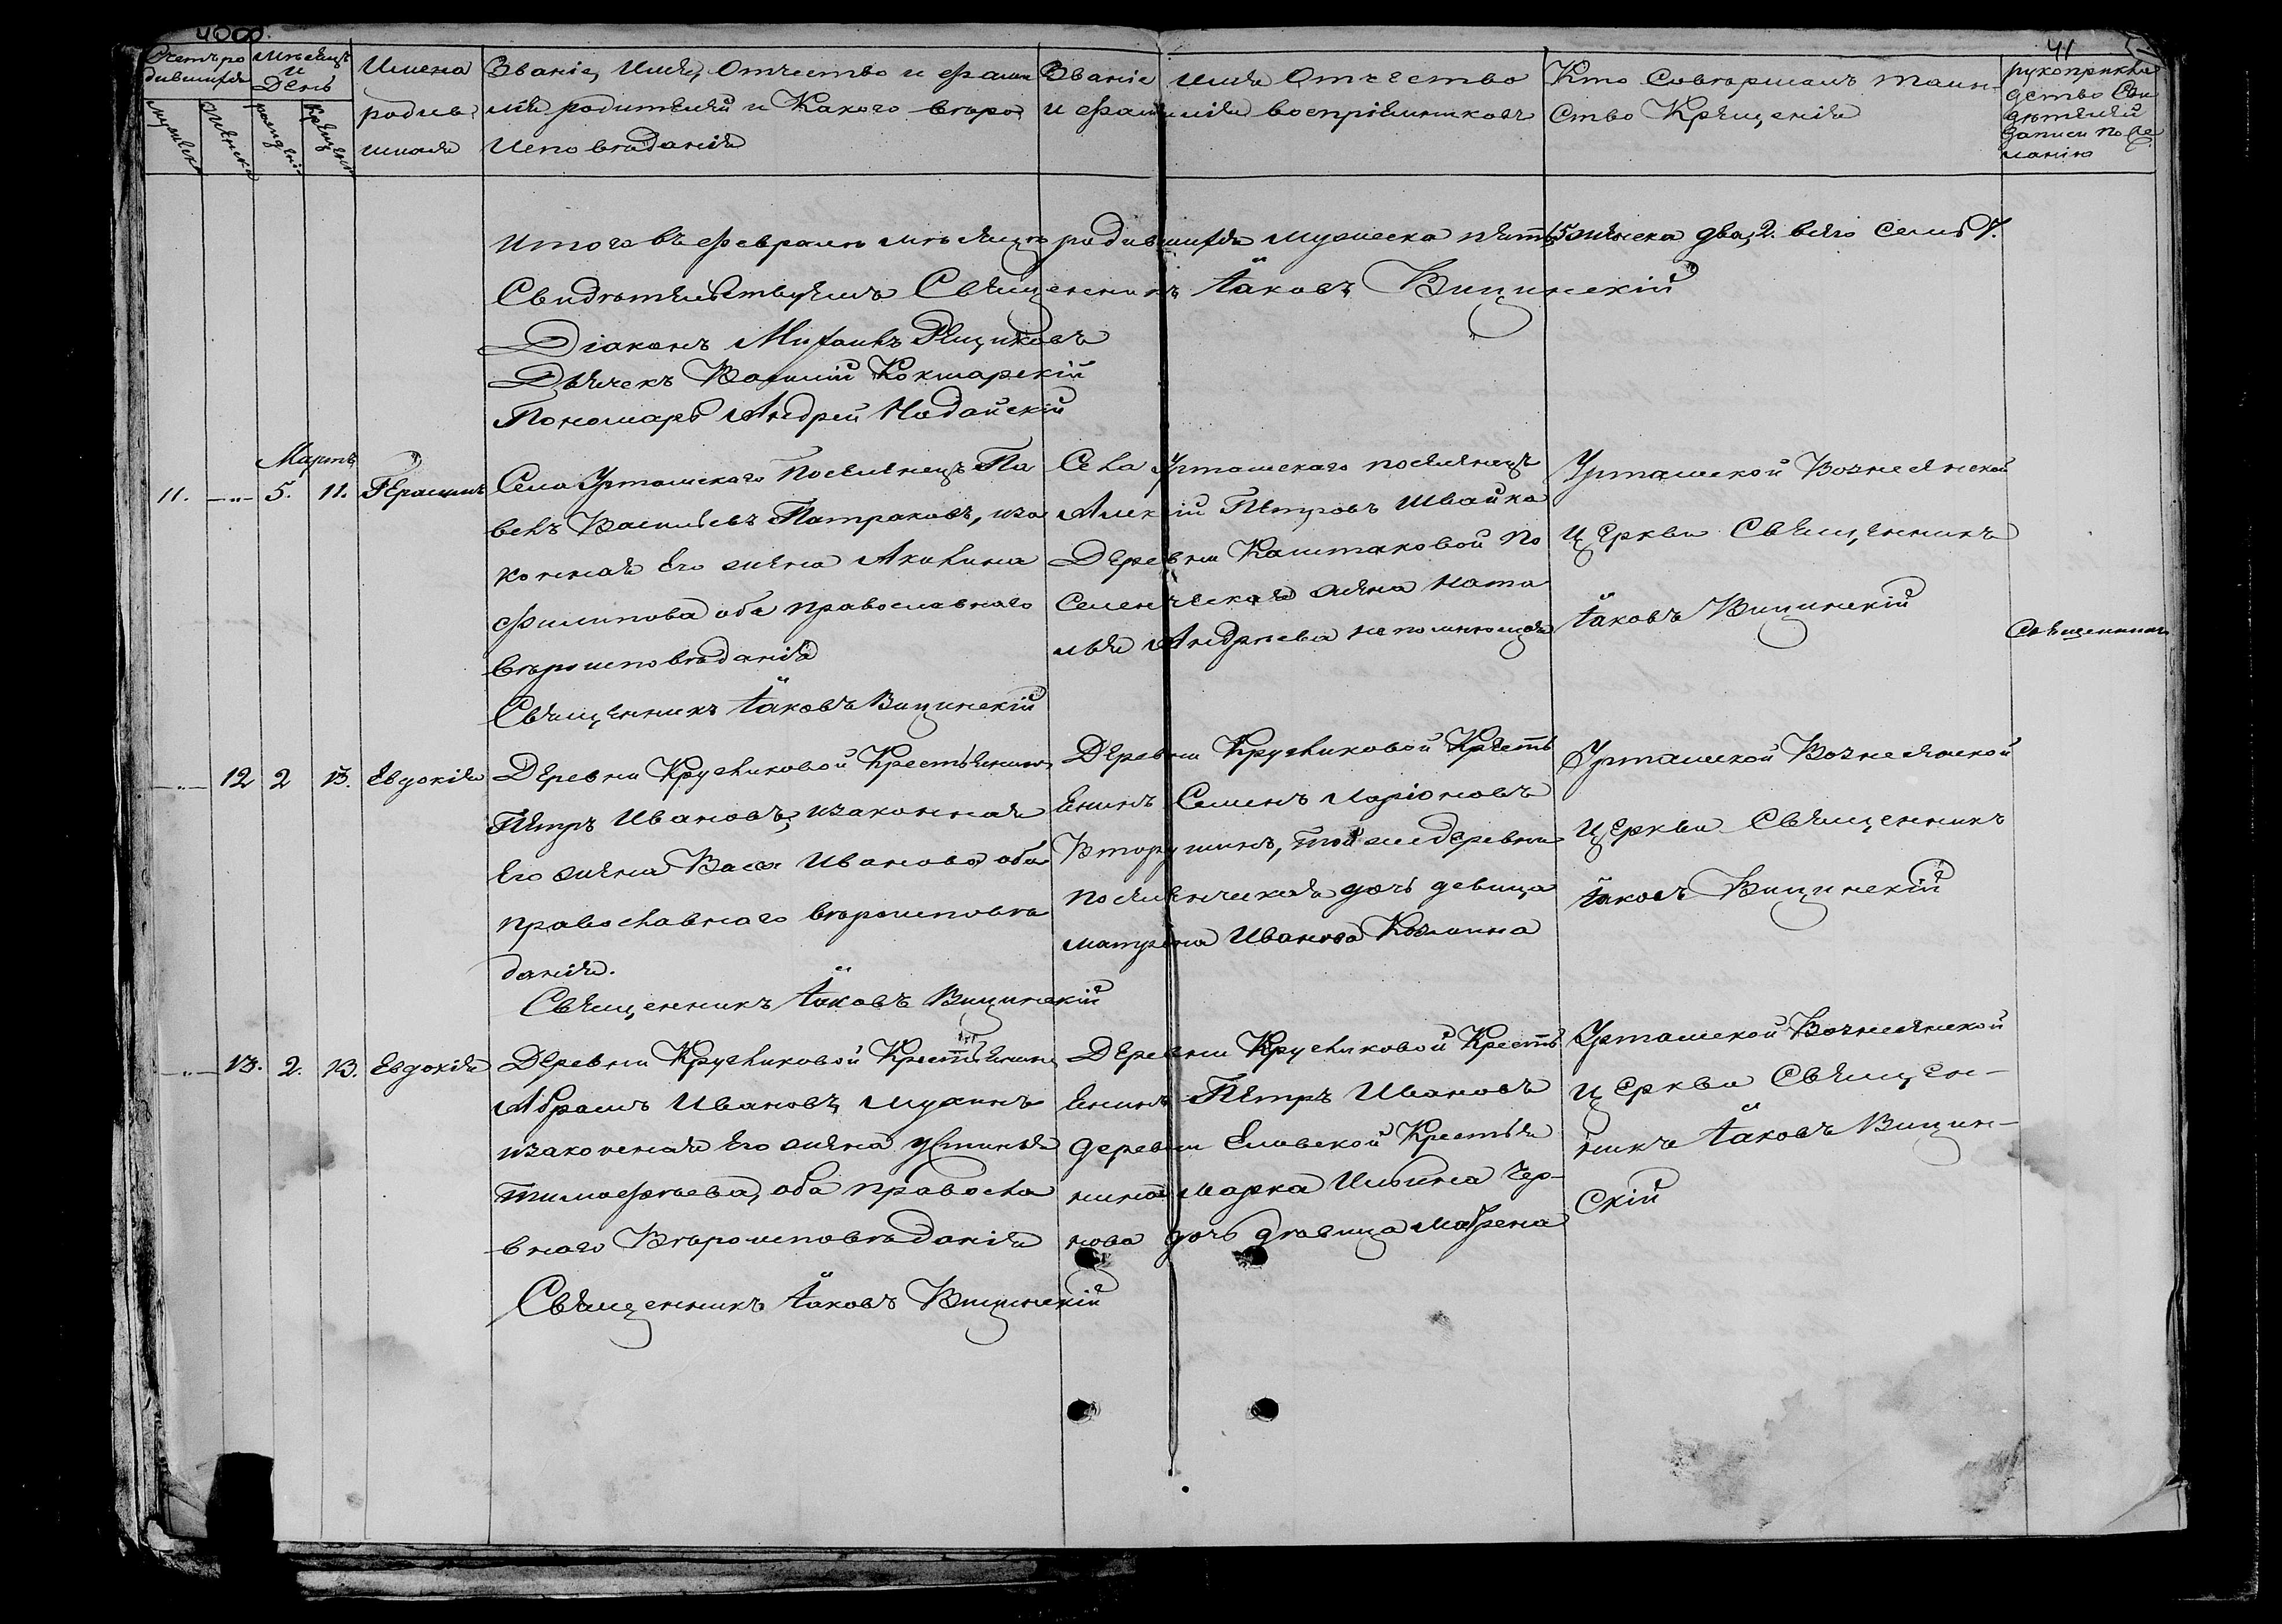 41
Счетъ родившихся
Мѣсяцъ и День
Имена родившихся
Званіе, Имя, Отчество и фамилія родителей и Какого вѣроисповѣданія
Званіе имя Отчество и фамилія воспріемниковъ
Кто Совѣршалъ таинство Крещенія
рукоприкладство Свидѣтелей записи по желанію
мужеска
женска
рожденія
крещенія
Итого въ февралѣ мѣсяцѣ родившихся мужеска пять 5 женска два, 2. всего семь 7.
Свидѣтельствуемъ Священникъ Іаковъ Вицинскій
Діаконъ Михаилъ
Дьячекъ Василій Кокшарскій
Пономарь Андрей
Мартъ
11. —„— 5. 11. Герасимъ
Села Урташскаго Поселенецъ Па
велъ Васильевъ Патраковъ, иза
конная Его жена Акилина
Филипова оба православнаго
вѣроисповѣданія
Священникъ Іаковъ Вицинскій
Села Урташскаго поселенецъ
Алексій Петровъ Швайко
Деревни Каштаковой По
селенческаго жена Ната
лья Андрѣева
Урташской Вознесенской
Церкви Священникъ
Іаковъ Вицинскій
Священникъ
—„— 12 2 13. Евдокія
Деревни Кругликовой Крестьянинъ
Петръ Ивановъ, изаконная
Его жена Васса Иванова оба
православнаго вѣроисповѣ
данія.
Священникъ Іаковъ Вицинскій
Деревни Кругликовой Кресть
янинъ Семенъ Ларіоновъ
Вторушинъ, той же деревни
поселенческая дочь девица
матрена Иванова
Урташской Вознесенской
Церкви Священникъ
Іаковъ Вицинскій
—„— 13. 2. 13. Евдокія
Деревни Кругликовой Крестьянинъ
Абрамъ Ивановъ
изаконная Его жена Устинья
Тимофѣева, оба Правосла
внаго Вѣроисповѣданія
Священникъ Іаковъ Вицинскій
Деревни Кругликовой Кресть
янинъ Петръ Ивановъ
деревни Еловской Крестья
нина Марка Ильина Чер-
нова дочь дѣвица Матрена
Урташской Вознесенской
Церкви Священ-
никъ Іаковъ Вицин-
скій